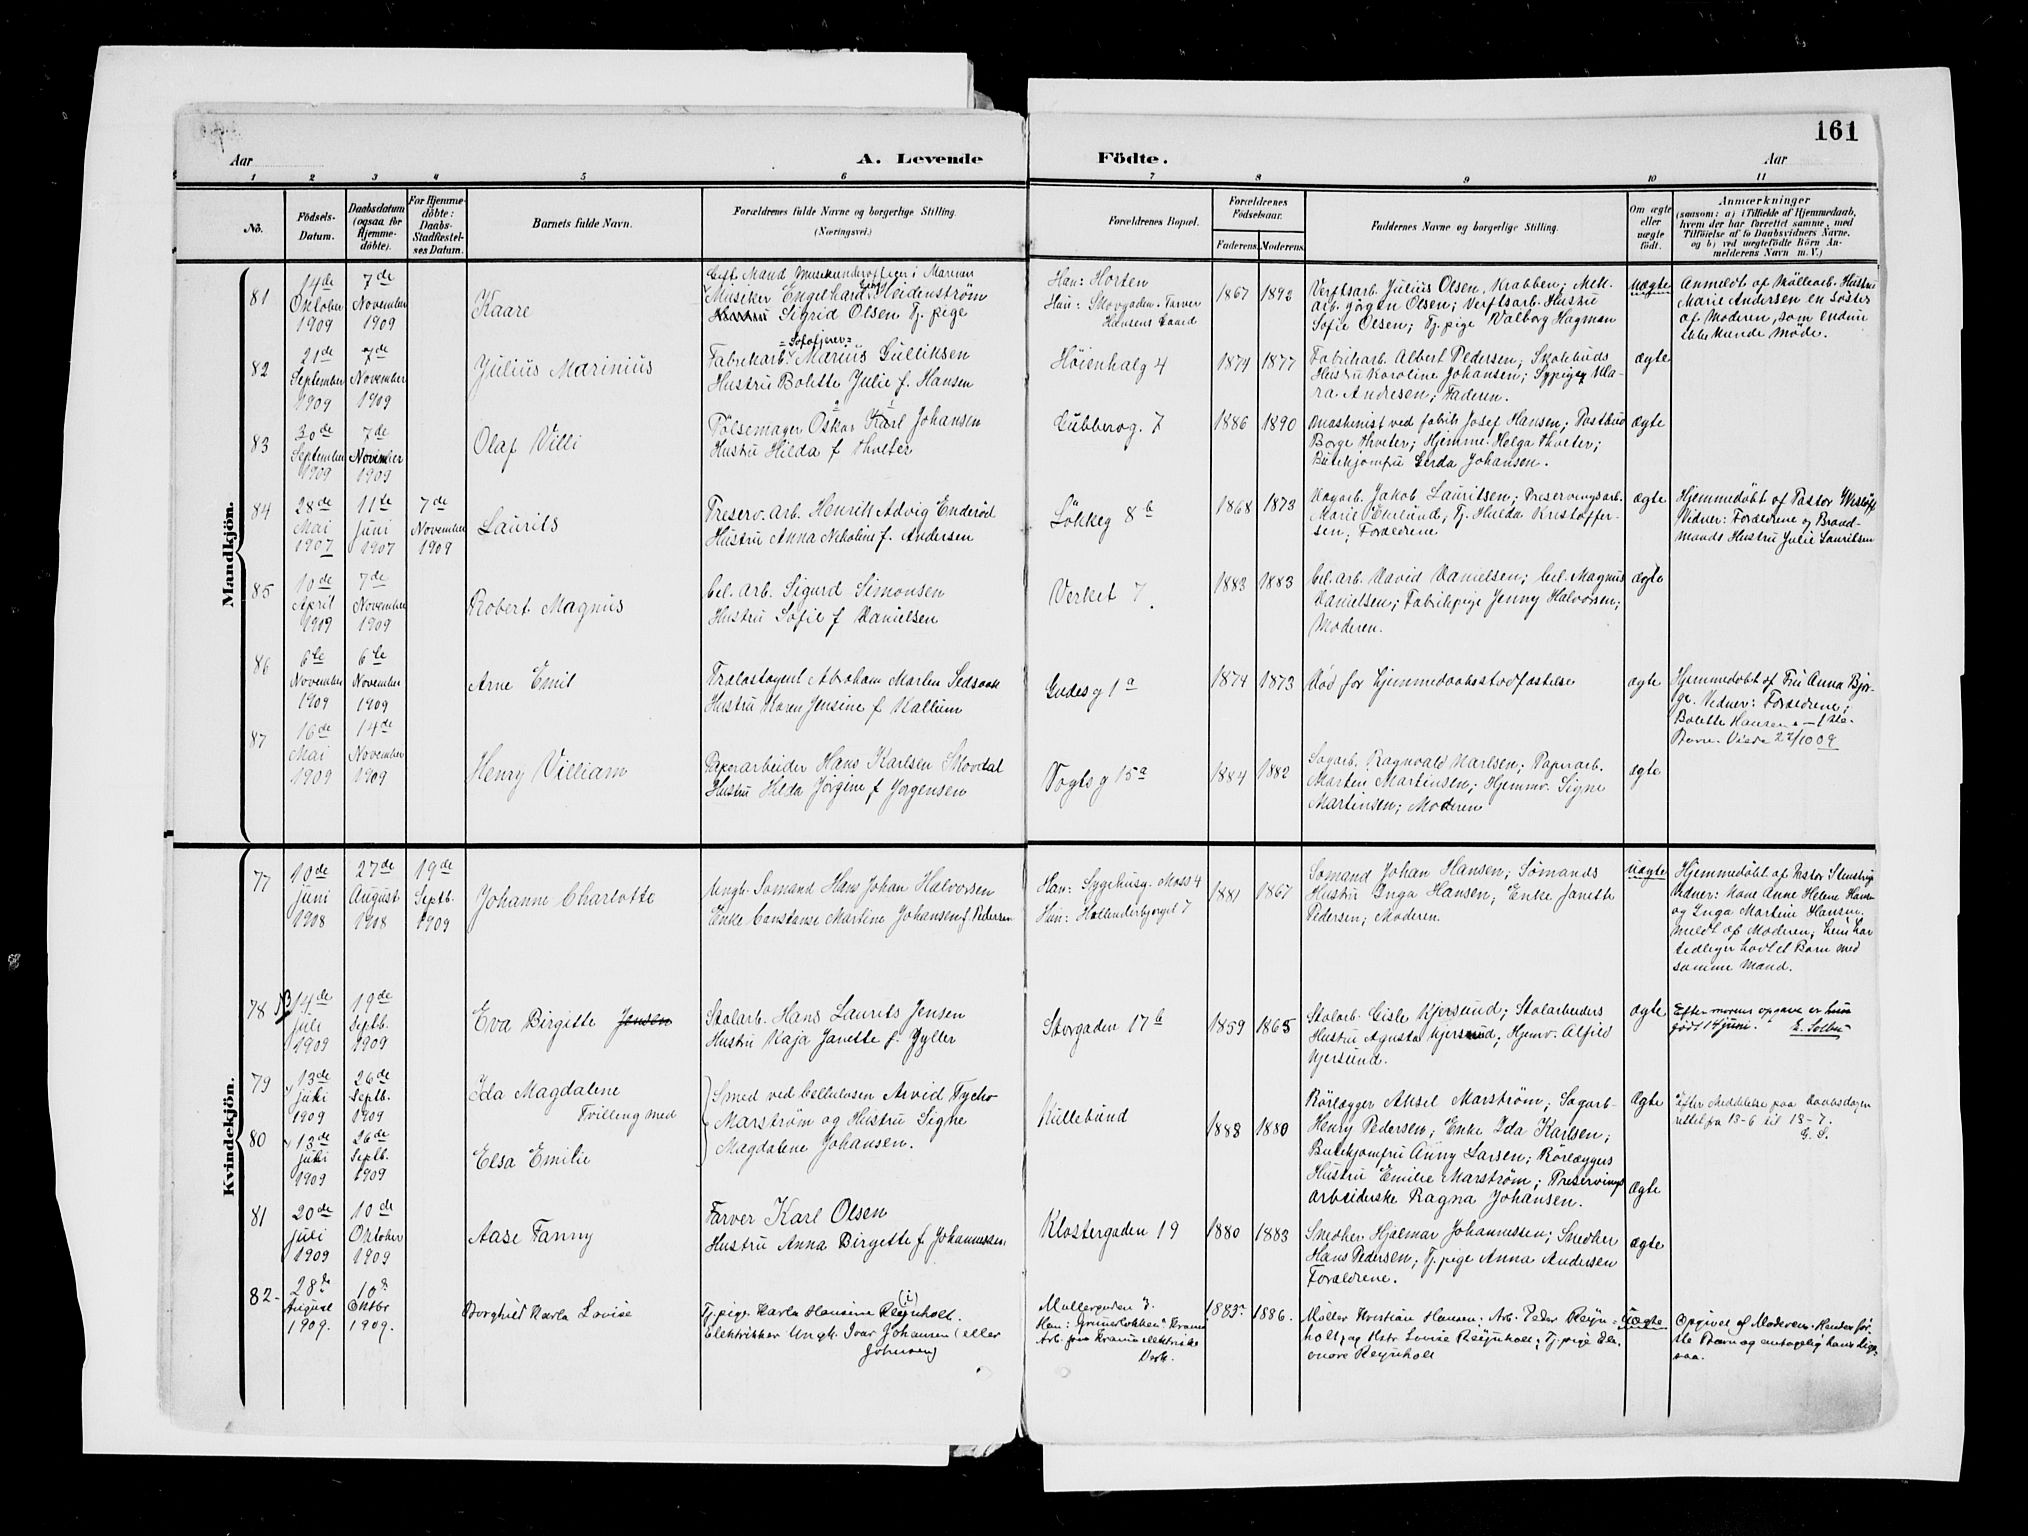 161
Aar
A. Levende
Födte.
Aar
1 2 3 4 5 6 7 8 9 10 11
No.
Födsels-
Datum.
Daabsdatum
(ogsaa for
Hjemme-
döbte).
For Hjemme-
döbte:
Daabs-
Stadfæstel-
ses Datum.
Barnets fulde Navn.
Forældrenes fulde Navne og borgerlige Stilling.
(Næringsvei.)
Forældrenes Bopæl.
Forældrenes
Födselsaar.
Faderens. Moderens.
Faddernes Navne og borgerlige Stilling.
Om ægte
eller
uægte
födt.
Anmærkninger
(saasom: a) i Tilfælde af Hjemmedaab,
hvem der har forrettet samme, med
Tilföielse af to Daabsvidners Navne,
og b) ved uægtefödte Börn An-
melderens Navn m. V.)
Mandkjön.
81
14de
Oktober
1909
7de
November
1909
Kaare
Gift Mand
Musiker Engelhard Heidenström
Hustru Sigrid Olsen Tj. pige
Han: Horten
Hun: Skovgaden. Farver
Hansens Gaard
1867 1892
Verftsarb. Julius Olsen, Krabben; Mek.
arb. Jörgen Olsen; Verftsarb. Hustru
Sofie Olsen; Tj. pige Valborg Hagman
Uægte
Anmeldt af Möllearb. Hustru
Marie Andersen en Söster
af Moderen, som endnu
ikke kunde möde.
82
21de
September
1909
7de
November
1909
Julius Marinius
Fabrikarb. Marius Gulliksen
Hustru Bolette Julie f. Hansen
Höienhalg 4
1879 1877
Fabrikarb. Albert Pedersen; Skolebuds
Hustru Karoline Johansen; Sypige Kla-
ra Andresen; Faderen.
ægte
83
30de
September
1909
7de
November
1909
Olaf Villi
Pölsemager Oskar Karl Johansen
Hustru Hilda f Tholter
Cubberog. 7
1886 1890
Maskinist ved fabrik Josef Hansen; Postbud
Borge Tholter; Hjemme. Helga Tholter;
Butikjomfru Gerda Johansen.
ægte
84
28de
Mai
1907
11te
Juni
1907
7de
November
1909
Laurits
Preserv. arb. Henrik Advig Enderöd
Hustru Anna Nikoline f. Andersen
Lökkeg 8b
1868 1873
Dagarb. Jakob Lauritsen; Preservingsarb.
Marie Enlund; Tj. Hulda Kristoffer-
sen; Forældrene
ægte
Hjemmedöbt af Pastor Wislöff
Vidner: Forældrene og Brand-
mands Hustru Julie Lauritsen
85
10de
April
1909
7de
November
1909
Robert Magnus
Cel. arb. Sigurd Simonsen
Hustru Sofie f Danielsen
Verket 7.
1883 1883
Cel. arb. David Danielsen; Cel. Magnus
Danielsen; Fabrikpige Jenny Halvorsen;
Moderen.
ægte
86
6te
November
1909
6te
November
1909
Arne Emil
Trælastagent Abraham Martin
Hustru Karen Jensine f Kallum
Gudes g 1a
1874 1873
Död för hjemmedaabsstadfæstelse
ægte
Hjemmedöbt af Fru Anna Bjer-
ge. Vidner: Forældrene;
Bolette Hansen
87
16de
Mai
1909
14de
November
1909
Henry Villiam
Papirarbeider Hans Karlsen Skovdal
Hustru Hilda Jörgine f Jörgensen
Vogts g 15a
1884 1882
Sagarb. Ragnvald Karlsen; Papirarb.
Martin Martinsen; Hjemmv. Signe
Martinsen; Moderen
ægte
Kvindekjön.
77
10de
Juni
1908
27de
August
1908
19de
Septb.
1909
Johanne Charlotte
Ungk. Sömand Hans Johan Halvorsen
Enke Constanse Martine Johansen f. Pedersen
Han: Sygehusg. Moss 4
Hun: Hollenderborget 7
1881 1867
Sömand Johan Hansen; Sömands
Hustru Inga Hansen; Enke Janette
Pedersen; Moderen.
Uægte
Hjemmedöbt af Pastor Stenstrup
Vidner: Kone Anne Helene
og Inga Martine Hansen.
meldt af Moderen; hun har
tidligere havt et Barn med
samme Mand.
78
13
14de
Juli
1909
19de
Septb.
1909
Eva Birgitte Jensen
Stolarb. Hans Laurits Jensen
Hustru Kaja Janette f. Gyller
Storgaden 17b
1859 1865
Stolarb. Gisle Kjersund; Stolarbeiders
Hustru Agusta Kjersund; Hjemv. Alfild
Kjersund.
ægte
Efter morens opgave er hun
födt 14 juni.
79
13de
Juli
1909
26de
Septb.
1909
Ida Magdalene
Tvilling med
Smed ved Cellulosen Arvid Tycho
Marström og Hustru Signe
Magdalene Johansen.
Kullebund
1888 1880
Rörlægger Aksel Marström; Sagarb.
Henry Pedersen; Enke Ida Karlsen;
Butikjomfru Anny Larsen; Rörlæggers
Hustru Emilie Marström; Preservings
arbeiderske Ragna Johansen.
ægte
Efter Meddelelse paa Daabsdagen
rettet fra 13-6 til 13-7.
G. S.
80
13de
Juli
1909
26de
Septb.
1909
Elsa Emilie
ægte
81
20de
Juli
1909
10de
Oktober
1909
Aase Fanny
Farver Karl Olsen
Hustru Anna Birgette f Johannessen
Klostergaden 19
1880 1883
Snedker Hjalmar Johannessen; Snedker
Hans Pedersen; Tj. pige Anna Andersen
Forældrene.
ægte
82-
28de
August
1909.
10de
Oktbr
1909.
Borghild Karla Lovise
Tj. pige. Karla Hansine Reynholt. (i)
Elektriker Ungk. Ivar Johansen (eller
Johnsen)
Möllergaden 3.
1883? 1886.
Möller Kristian Hansen; Arb. Peder Reyn-
holt, og Hstr Lovise Reynholt; Tj. pige Ele-
onore Reynholt
Uægte
Opgivet af Moderen.